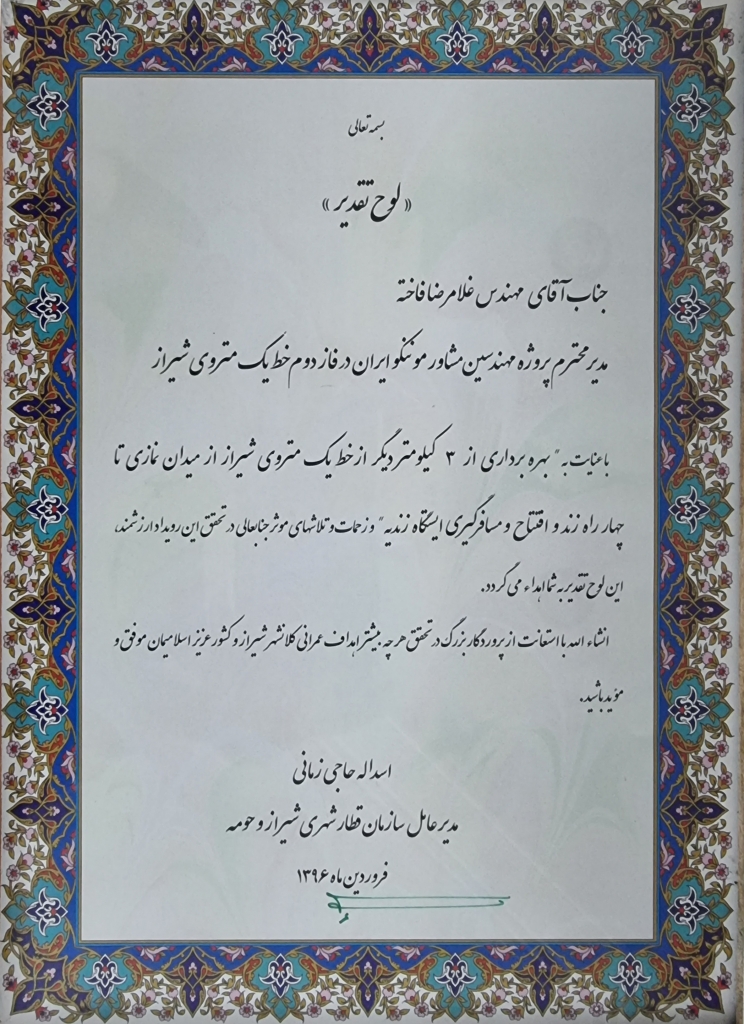 بسمه تعالی
« لوح تقدیر »
جناب آقای مهندس غلامرضا فاخته
مدیر محترم پروژه مهندسین مشاور موننکو ایران در فاز دوم خط یک متروی شیراز
با عنایت به " بهره برداری از ۳ کیلومتر دیگر از خط یک متروی شیراز از میدان نمازی تا
چهار راه زند و افتتاح و مسافرگیری ایستگاه زندیه " و زحمات و تلاشهای موثر جنابعالی در تحقق این رویداد ارزشمند،
این لوح تقدیر به شما اهداء می گردد.
انشاء الله با استعانت از پروردگار بزرگ در تحقق هر چه بیشتر اهداف عمرانی کلانشهر شیراز و کشور عزیز اسلامیمان موفق و
مؤید باشید.
اسداله حاجی زمانی
مدیر عامل سازمان قطار شهری شیراز و حومه
فروردین ماه ۱۳۹۶